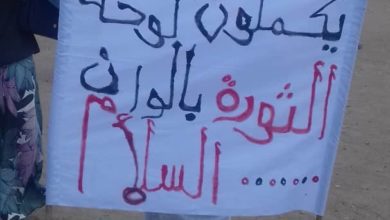 يكملون لوحة
الثورة بالوان
السلام .......!